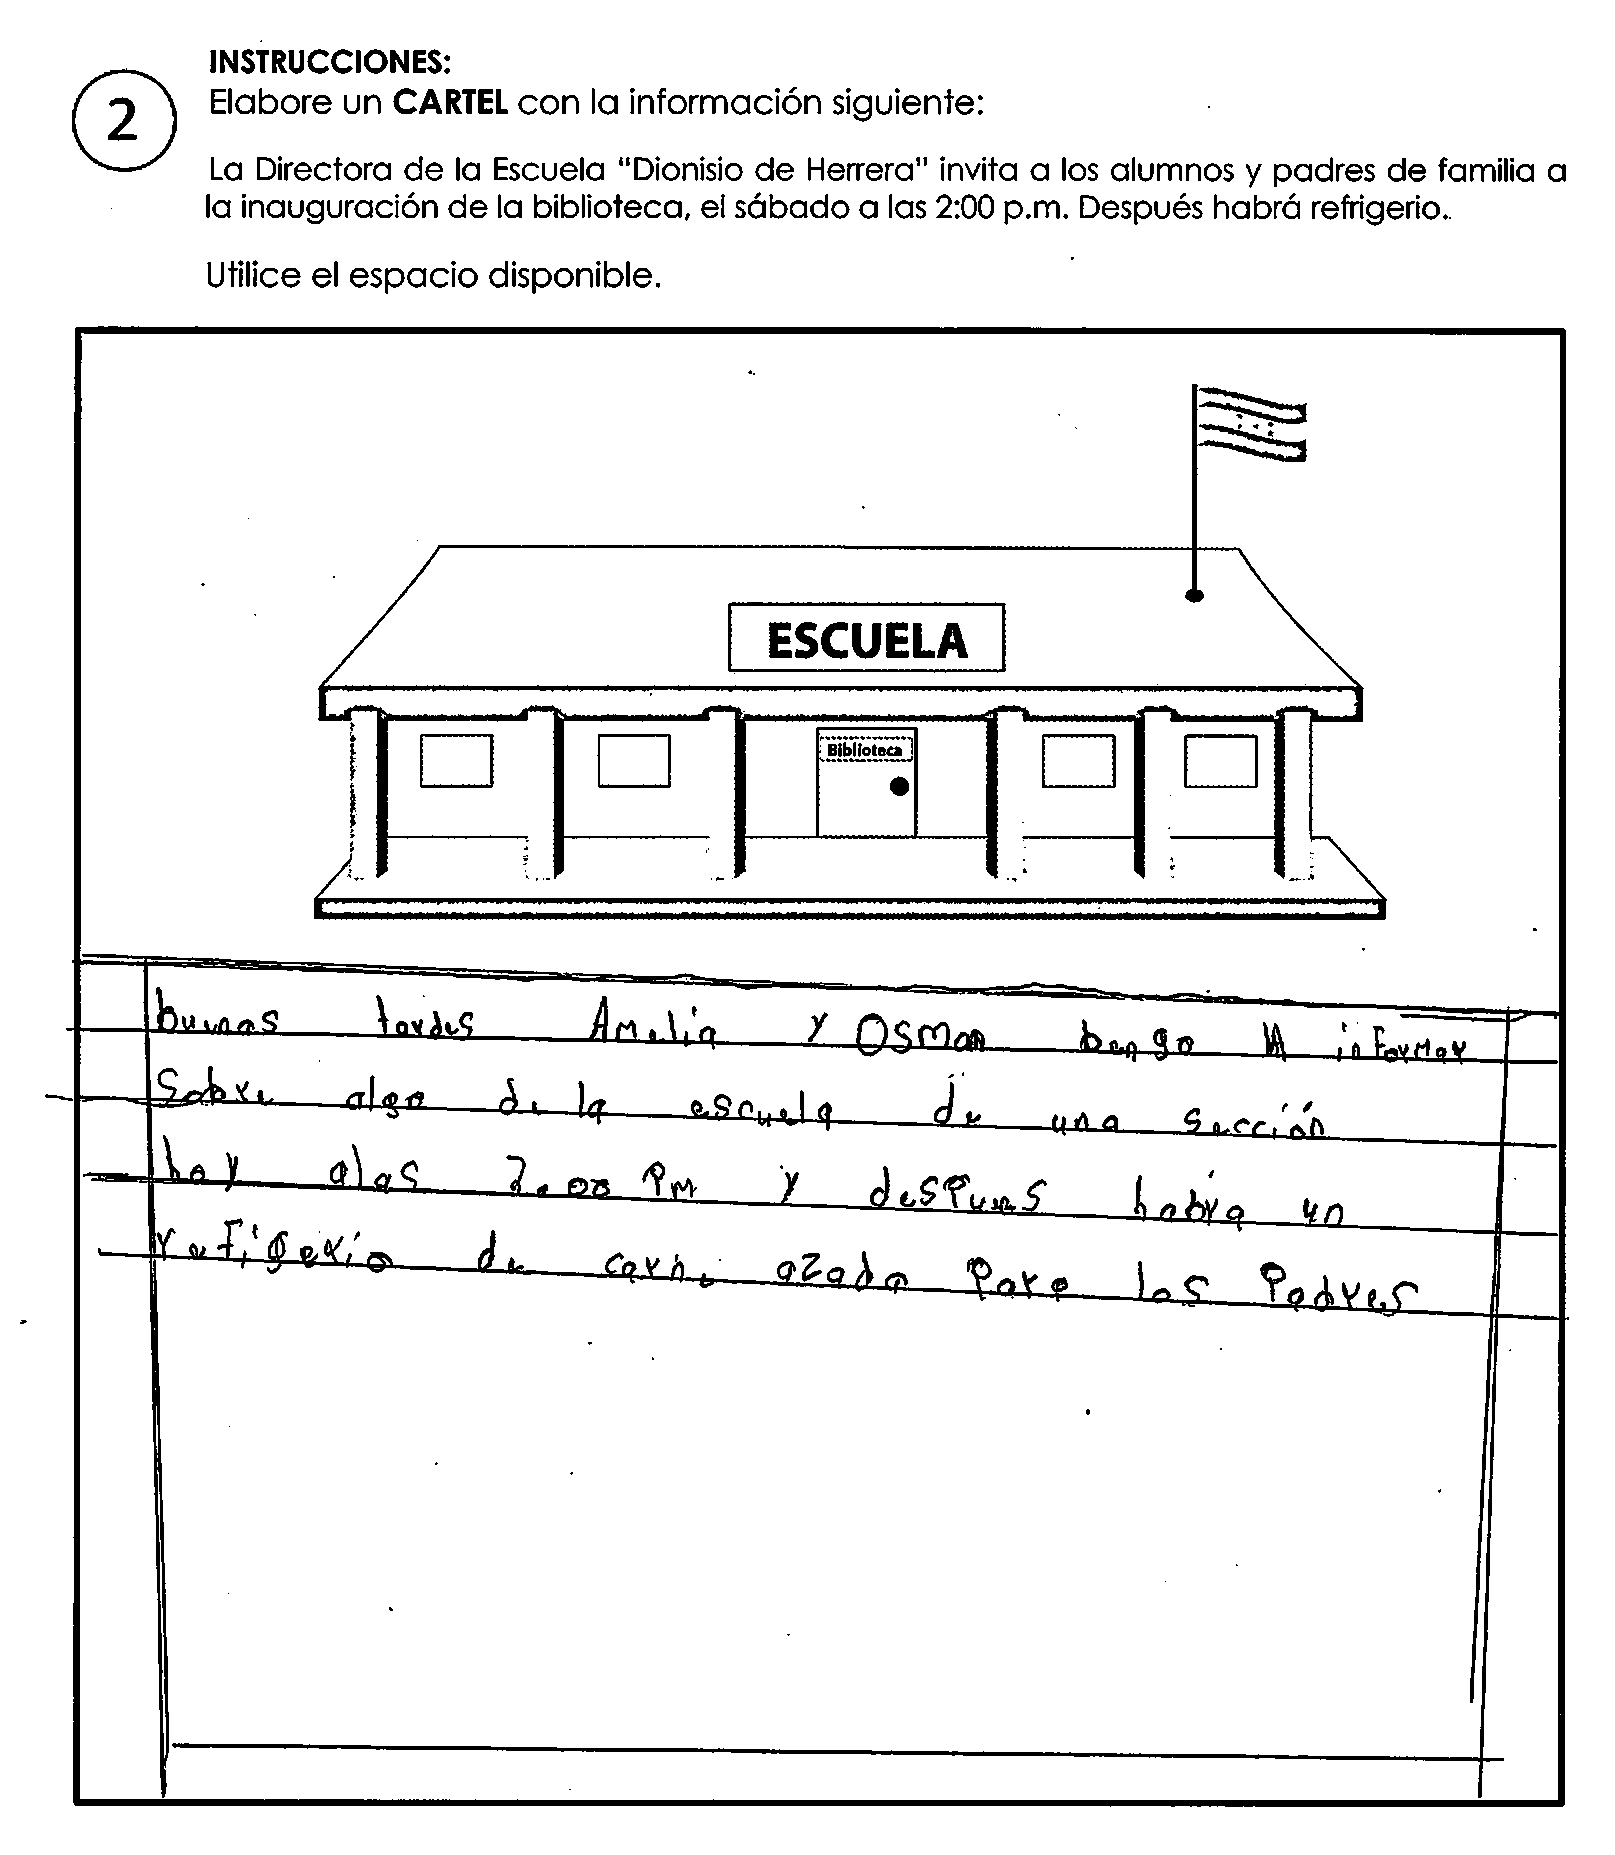 INSTRUCCIONES:
2
Elabore un CARTEL con la información siguiente:
La Directora de la Escuela "Dionisio de Herrera" invita a los alumnos y padres de familia a
la inauguración de la biblioteca, el sábado a las 2:00 p.m. Después habrá refrigerio.
Utilice el espacio disponible.
ESCUELA
Biblioteca
buenas tardes Amelia y Osman bengo A informar
Sobre algo de la escuela de una sección
hoy alas 2.00 PM y despues habra un
refigerio de carne azada para los Padres